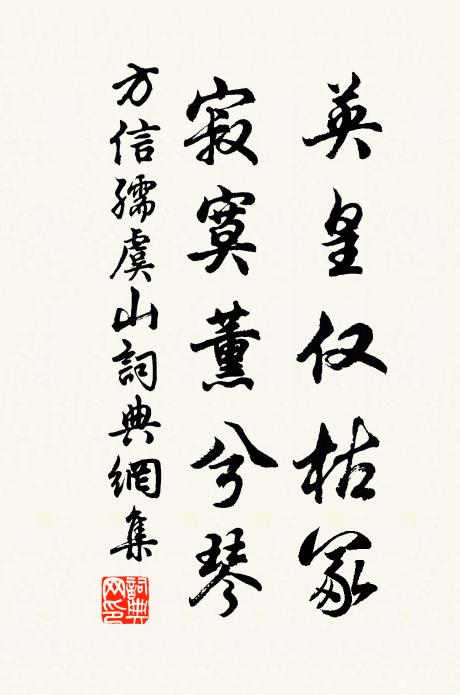 英皇仅枯冢
寂寞薰兮琴
方信孺虞山詞典網集
詞典网印